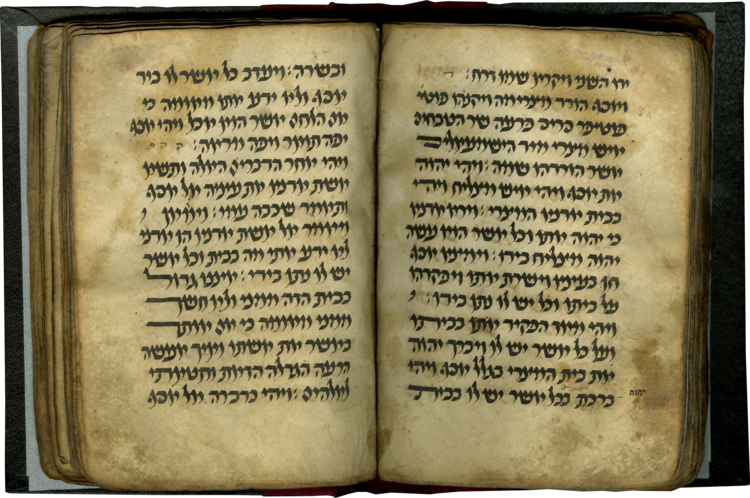 ידו השני ויקרא שמו זרח:
ויוסף הורד מצרימה ויקנהו פוטי
פוטיפר סריס פרעה שר הטבחים
איש מצרי מיד הישמעאלים
אשר הורדהו שמה: ויהי יהוה
את יוסף ויהי איש מצליח ויהי
בבית אדניו המצרי: וירא אדניו
כי יהוה אתו וכל אשר הוא עשה
יהוה מצליח בידו: וימצא יוסף
חן בעיניו וישרת אתו ויפקדהו
על ביתו וכל יש לו נתן בידו:
ויהי מאז הפקיד אתו בביתו
ועל כל אשר יש לו ויברך יהוה
את בית המצרי בגלל יוסף ויהי
ברכת בכל אשר יש לו בבית
יהוה
ובשדה: ויעזב כל אשר לו ביד
יוסף ולא ידע אתו מאומה כי
אם הלחם אשר הוא אכל ויהי יוסף
יפה תאור ויפה מראה:
ויהי אחר הדברים האלה ותשא
אשת אדניו את עיניה אל יוסף
ותאמר שכבה עמי: וימאן
ויאמר אל אשת אדניו הן אדני
לא ידע אתי מה בבית וכל אשר
יש לו נתן בידי: איננו גדול
בבית הזה ממני ולא חשך
ממני מאומה כי אם אתך
באשר את אשתו ואיך אעשה
הרעה הגדלה הזאת וחטאתי
לאלהים: ויהי כדברה אל יוסף